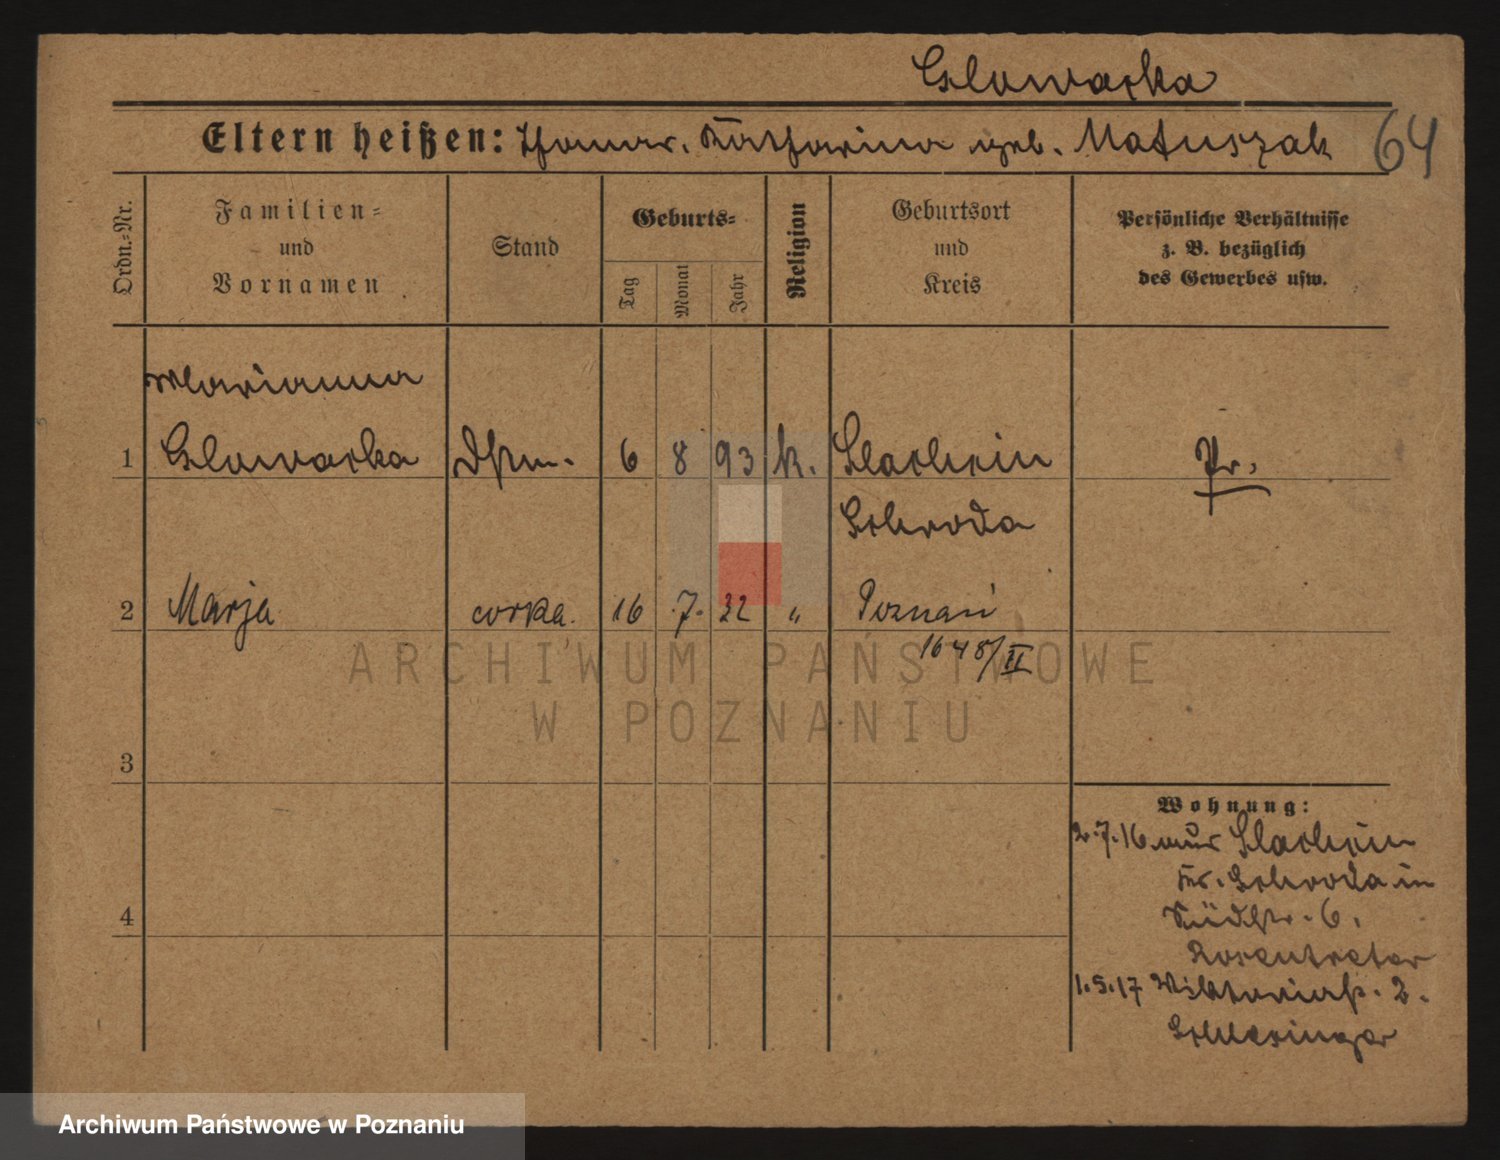 Glowacka
Eltern heißen: Thomas. Katharina geb. Matuszak 64
Ordn.-Nr.
Familien-
und
Vornamen
Stand
Geburts-
Tag
Monat
Jahr
Religion
Geburtsort
und
Kreis
Persönliche Verhältnisse
z. B. bezüglich
des Gewerbes usw.
Marianna
1 Glowacka Dstm. 6 8 93 k. Slachcin Pr.
Schroda
2 Marja corka. 16 7. 32 " Poznań
1648/II
ARCHIWUM PAŃSTWOWE
W POZNANIU
3
Wohnung:
2.7.16 aus Slachcin
Kr. Schroda in
Südstr. 6.
Rosentreter
1.5.17 Viktoriastr. 2.
Schlesinger
4
Archiwum Państwowe w Poznaniu